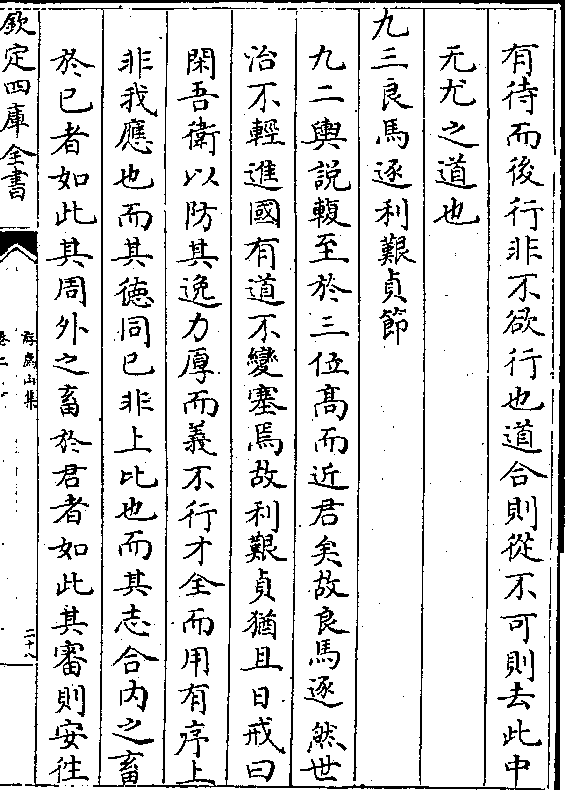 有待而後行非不欲行也道合則從不可則去此中
无尤之道也
九三良馬逐利艱貞節
九二輿說輹至於三位髙而近君矣故良馬逐然世
治不輕進國有道不變塞焉故利艱貞猶且日戒曰
閑吾衛以防其逸力厚而義不行才全而用有序上
非我應也而其徳同已非上比也而其志合内之畜
於已者如此其周外之畜於君者如此其審則安往
欽定四庫全書
山集
卷二
二十八